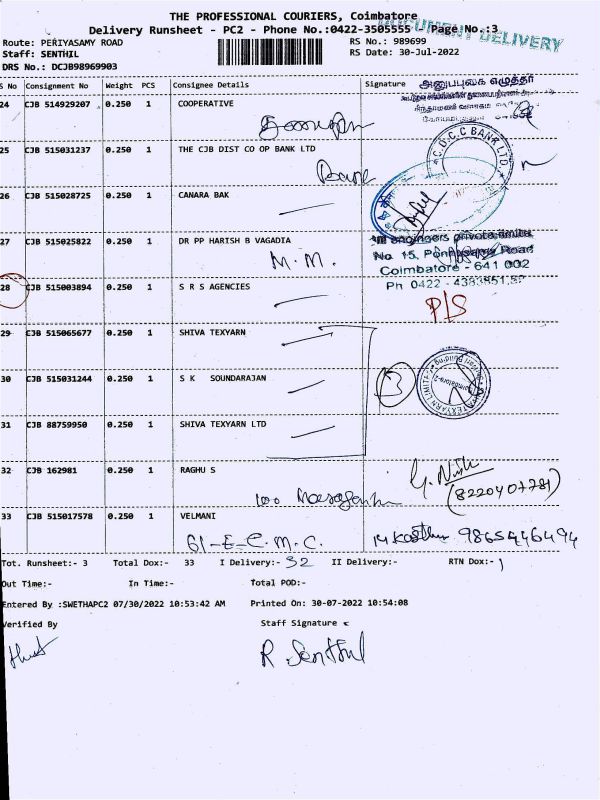 THE PROFESSIONAL COURIERS, Coimbatore
Delivery Runsheet - PC2 - Phone No.:0422-3505555 Page No.:3
DOCUMENT DELIVERY
Route: PERIYASAMY ROAD RS No.: 989699
Staff: SENTHIL RS Date: 30-Jul-2022
DRS No.: DCJB98969903
S No Consignment No Weight PCS Consignee Details Signature
அனுபபுலக எழுத்தர்
24 CJB 514929207 0.250 1 COOPERATIVE
25 CJB 515031237 0.250 1 THE CJB DIST CO OP BANK LTD
C.D.C.C BANK LTD.
26 CJB 515028725 0.250 1 CANARA BAK
27 CJB 515025822 0.250 1 DR PP HARISH B VAGADIA
M. M.
engineers private limited
No 15, Road
Coimbatore - 641 002
Ph 0422 -
28 CJB 515003894 0.250 1 S R S AGENCIES
P/S
29 CJB 515065677 0.250 1 SHIVA TEXYARN
30 CJB 515031244 0.250 1 S K SOUNDARAJAN
3
31 CJB 88759950 0.250 1 SHIVA TEXYARN LTD
32 CJB 162981 0.250 1 RAGHU S
100
(8220407781)
33 CJB 515017578 0.250 1 VELMANI
61-E-C.M.C. 9865446494
Tot. Runsheet:- 3 Total Dox:- 33 I Delivery:- 32 II Delivery:- RTN Dox:- 1
Out Time:- In Time:- Total POD:-
Entered By :SWETHAPC2 07/30/2022 10:53:42 AM Printed On: 30-07-2022 10:54:08
Verified By Staff Signature :
R. Senthil